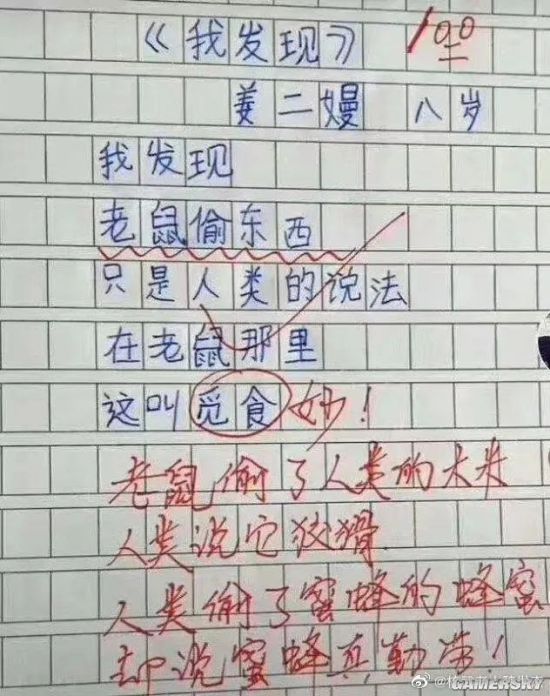 《我发现》 100
姜二嫚 八岁
我发现
老鼠偷东西
只是人类的说法
在老鼠那里
这叫觅食 妙！
老鼠偷了人类的大米
人类说它狡猾
人类偷了蜜蜂的蜂蜜
却说蜜蜂真勤劳！
GAMERSKY